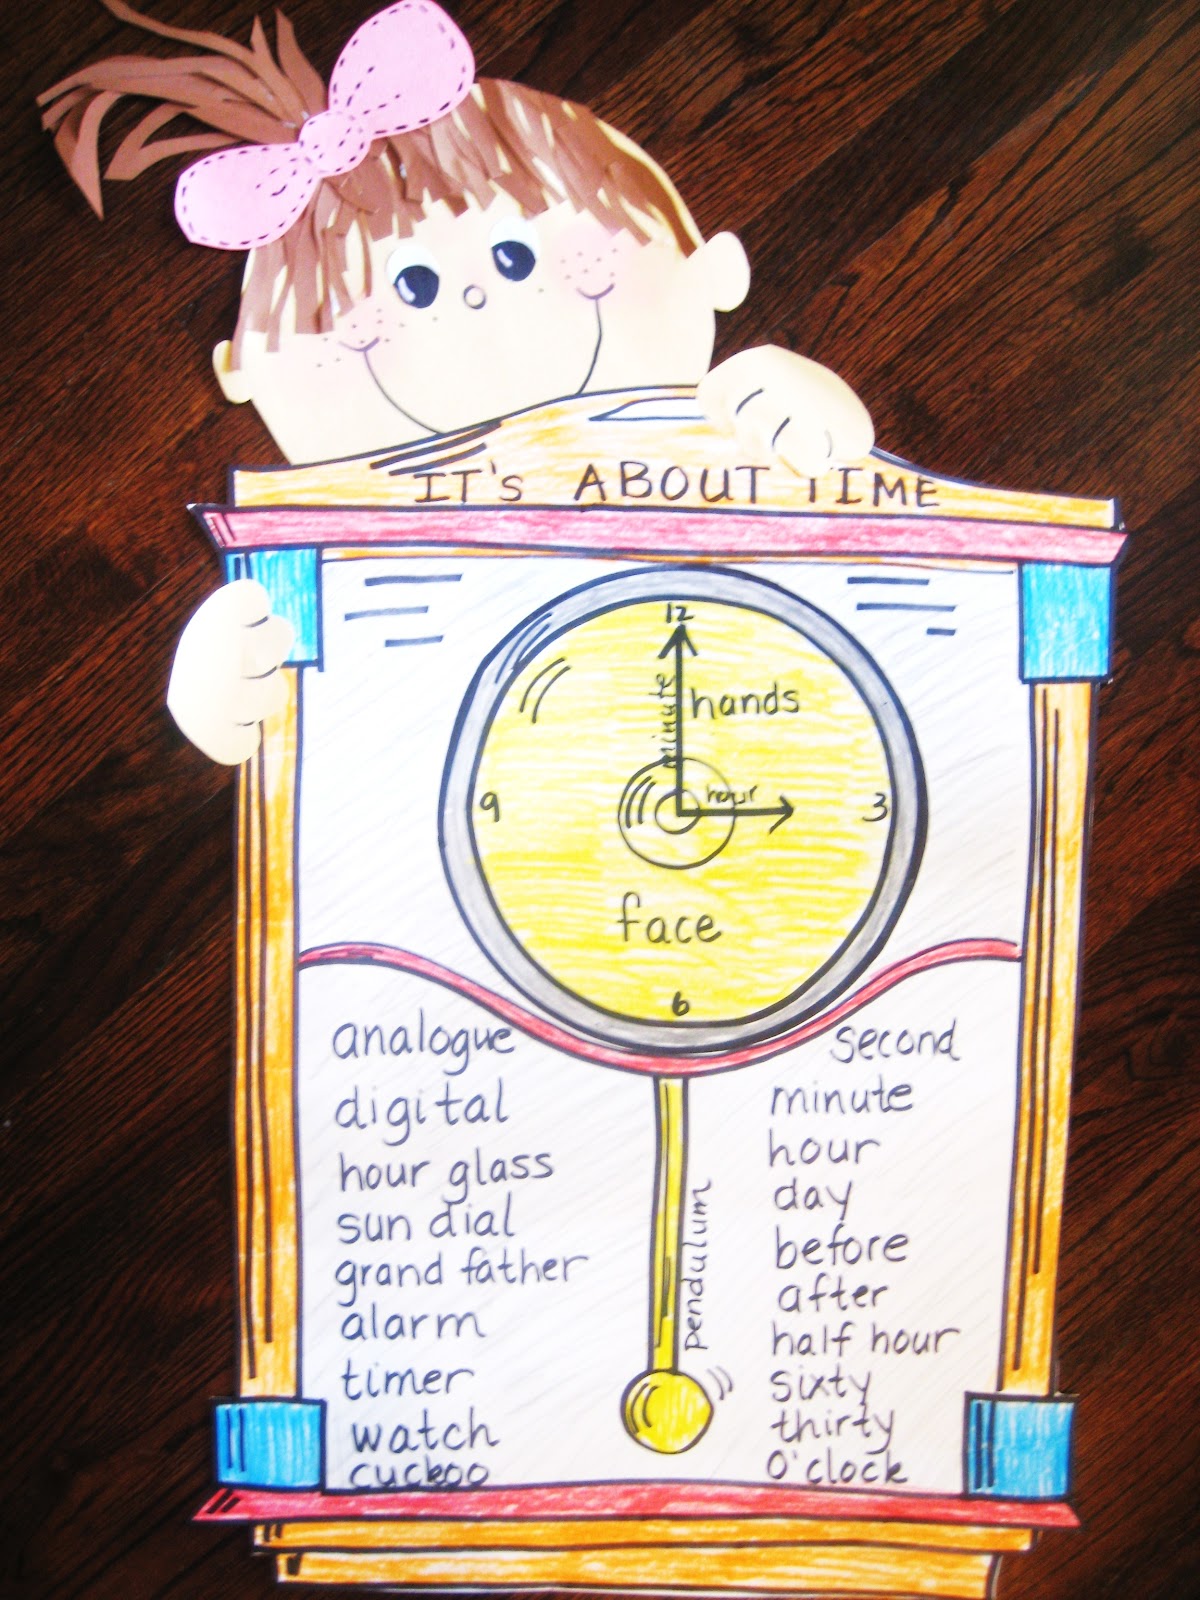 IT'S ABOUT TIME
12
minute
hands
hour
9
3
face
6
analogue
digital
hour glass
sun dial
grand father
alarm
timer
watch
cuckoo
pendulum
second
minute
hour
day
before
after
half hour
sixty
thirty
O'clock